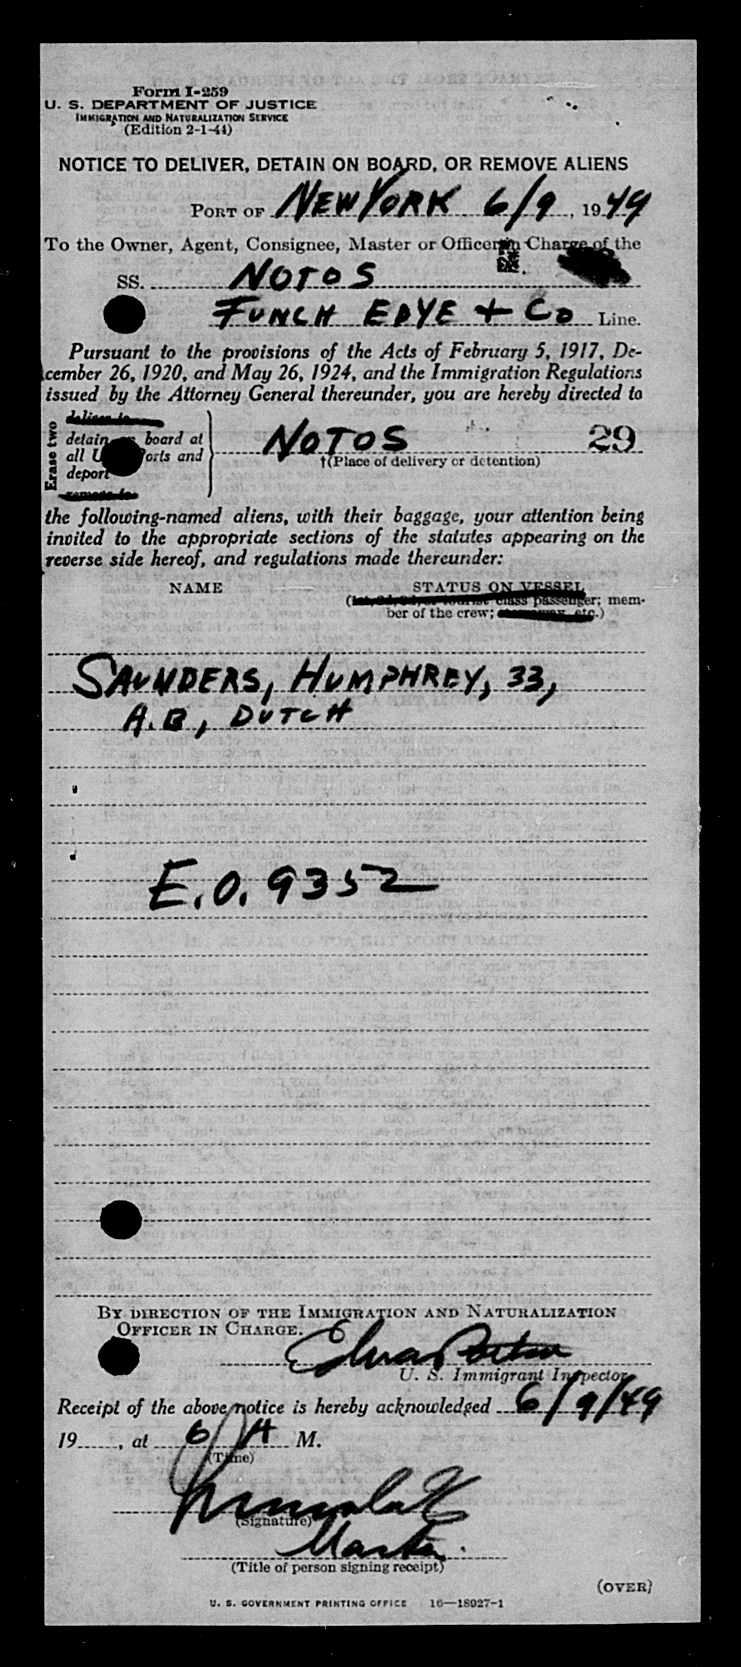 Form I-259
U. S. DEPARTMENT OF JUSTICE
IMMIGRATION AND NATURALIZATION SERVICE
(Edition 2-1-44)
NOTICE TO DELIVER, DETAIN ON BOARD, OR REMOVE ALIENS
PORT OF NEW YORK 6/9, 1949
To the Owner, Agent, Consignee, Master or Officer in Charge of the
SS. NOTOS
FUNCH EDYE + CO Line.
Pursuant to the provisions of the Acts of February 5, 1917, De-
cember 26, 1920, and May 26, 1924, and the Immigration Regulations
issued by the Attorney General thereunder, you are hereby directed to
Erase two
deliver to
detain on board at
all U. ports and
deport
remove to
NOTOS 29
†(Place of delivery or detention)
the following-named aliens, with their baggage, your attention being
invited to the appropriate sections of the statutes appearing on the
reverse side hereof, and regulations made thereunder:
NAME STATUS ON VESSEL
class passenger; mem-
ber of the crew; etc.)
SAUNDERS, HUMPHREY, 33,
A.B, DUTCH
E.O. 9352
BY DIRECTION OF THE IMMIGRATION AND NATURALIZATION
OFFICER IN CHARGE.
U. S. Immigrant Inspector
Receipt of the above notice is hereby acknowledged 6/9/49
19, at 6 / A M.
(Time)
(Signature)
Master.
(Title of person signing receipt)
(OVER)
U. S. GOVERNMENT PRINTING OFFICE 16—18027-1